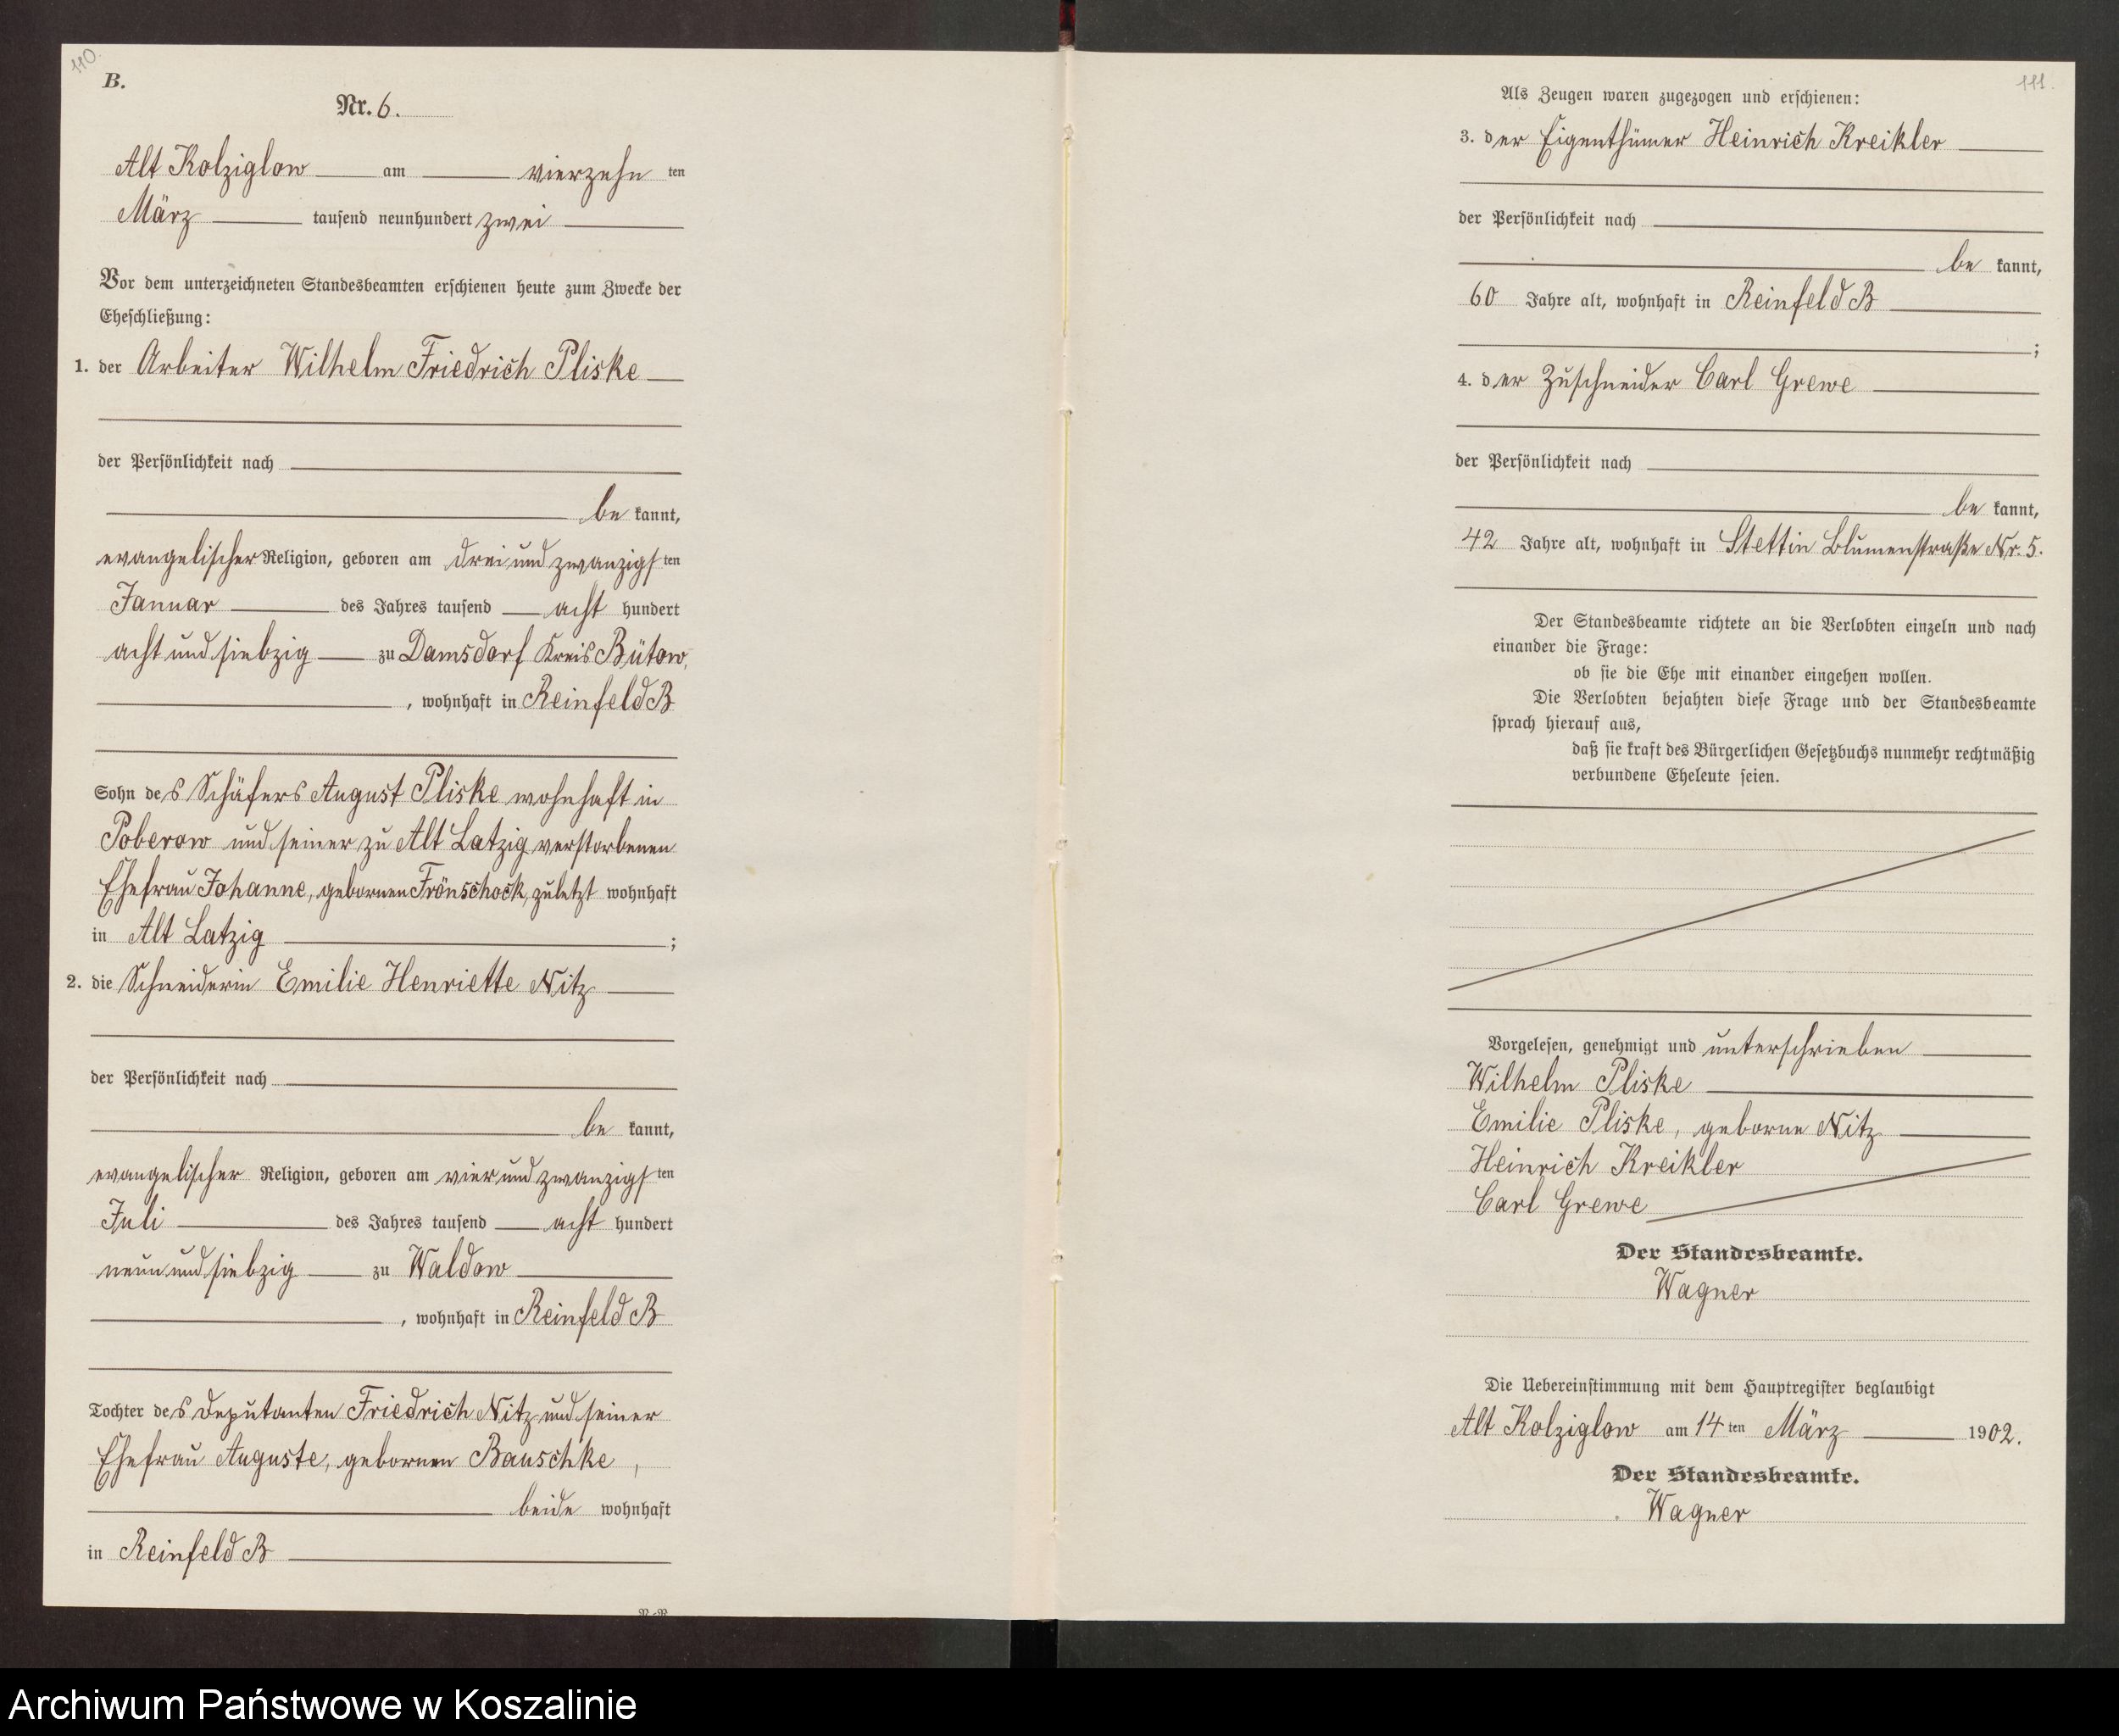 110.
B.
Nr. 6.
Alt Kolziglow am vierzehn ten
März tausend neunhundert zwei
Vor dem unterzeichneten Standesbeamten erschienen heute zum Zwecke der
Eheschließung:
1. der Arbeiter Wilhelm Friedrich Pliske
der Persönlichkeit nach
be kannt,
evangelischer Religion, geboren am drei und zwanzigs ten
Januar des Jahres tausend acht hundert
acht und siebzig zu Damsdorf Kreis Bütow,
, wohnhaft in Reinfeld B
Sohn des Schäfers August Pliske wohnhaft in
Poberow und seiner zu Alt Latzig verstorbenen
Ehefrau Johanne, gebornen Frönschock, zuletzt wohnhaft
in Alt Latzig ;
2. die Schneiderin Emilie Henriette Nitz
der Persönlichkeit nach
be kannt,
evangelischer Religion, geboren am vier und zwanzigs ten
Juli des Jahres tausend acht hundert
neun und siebzig zu Waldow
, wohnhaft in Reinfeld B
Tochter des Deputanten Friedrich Nitz und seiner
Ehefrau Auguste, gebornen Bauschke,
beide wohnhaft
in Reinfeld B
111.
Als Zeugen waren zugezogen und erschienen:
3. der Eigenthümer Heinrich Kreikler
der Persönlichkeit nach
be kannt,
60 Jahre alt, wohnhaft in Reinfeld B
;
4. der Zuschneider Carl Grewe
der Persönlichkeit nach
be kannt,
42 Jahre alt, wohnhaft in Stettin Blumenstraße Nr. 5.
Der Standesbeamte richtete an die Verlobten einzeln und nach
einander die Frage:
ob sie die Ehe mit einander eingehen wollen.
Die Verlobten bejahten diese Frage und der Standesbeamte
sprach hierauf aus,
daß sie kraft des Bürgerlichen Gesetzbuchs nunmehr rechtmäßig
verbundene Eheleute seien.
Vorgelesen, genehmigt und unterschrieben
Wilhelm Pliske
Emilie Pliske, geborne Nitz
Heinrich Kreikler
Carl Grewe
Der Standesbeamte.
Wagner
Die Uebereinstimmung mit dem Hauptregister beglaubigt
Alt Kolziglow am 14 ten März 1902.
Der Standesbeamte.
Wagner
Archiwum Państwowe w Koszalinie